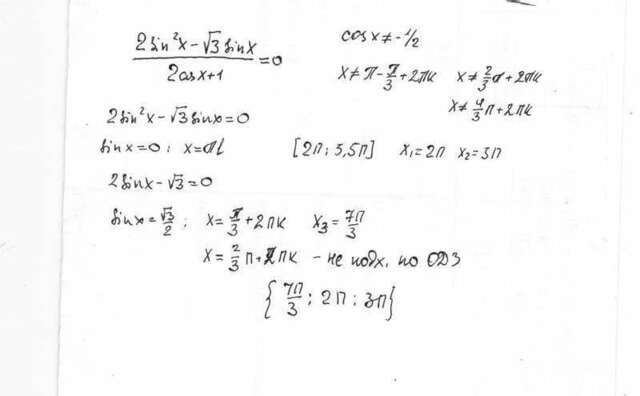 (2sin²x − √3 sinx)/(2cosx+1) = 0
cosx ≠ -1/2
x ≠ π - π/3 + 2πk x ≠ 2/3 π + 2πk
x ≠ 4/3 π + 2πk
2sin²x − √3 sinx = 0
sinx = 0 ; x = πl [2π ; 3,5π] x₁ = 2π x₂ = 3π
2sinx − √3 = 0
sinx = √3/2 ; x = π/3 + 2πk x₃ = 7π/3
x = 2/3 π + 2πk – не подх. по ОДЗ
{7π/3 ; 2π ; 3π}